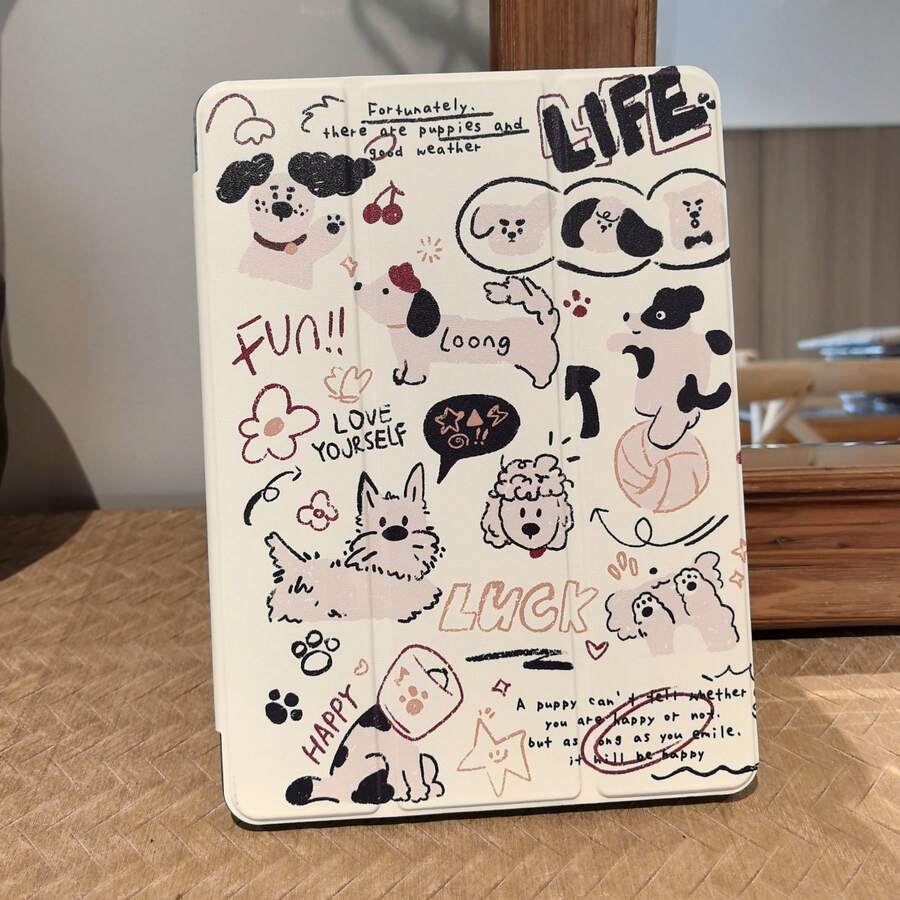 Fortunately.
there are puppies and
good weather
LIFE
FUN!!
Loong
LOVE
YOURSELF
!!
LUCK
HAPPY
A puppy can't tell whether
you are happy or not.
but as long as you smile.
it will be happy